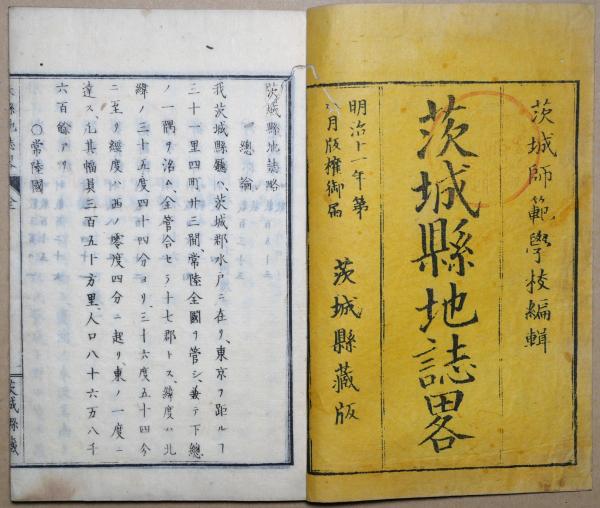 茨城師範學校編輯
茨城縣地誌畧
明治十一年第
月版權御届
茨城縣藏版
茨城縣地誌略
總論
我茨城縣廳ハ、茨城郡水戸ニ在リ、東京ヲ距ルヿ
三十一里四町廿三間、常陸全國ヲ管シ、兼テ下總
ノ一隅ヲ治ム、全管合セテ十七郡トス、緯度ハ北
緯ノ三十五度四十四分ヨリ、三十六度五十四分
ニ至リ、經度ハ西ノ零度四分ニ起リ、東ノ一度ニ
達ス、凡其幅員三百五十方里、人口八十六万八千
六百餘アリ
〇常陸國
茨城縣藏